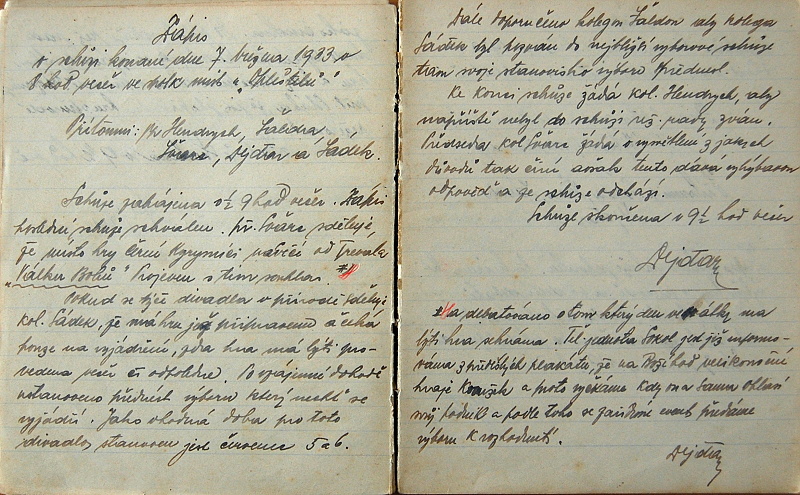 Zápis
o schůzi konané dne 7. března 1933 v
8 hod večer ve
Přítomni: pp Hendrych, Šalda,
Švarc, Dejdar a Sádek.
Schůze zahájena v ½ 9 hod večer. Zápis
poslední schůze schválen. př. Švarc sděluje,
že místo hry Černí nacvičí od
"Válku Bohů" Projeven s tím souhlas. #
Pokud se týče divadla v přírodě sděluje
kol. Sádek, že má hru již připravenou a čeká
pouze na vyjádření, zda hra má býti pro-
vedena večer či odpoledne. Po vzájemné dohodě
ustanoveno předněst výboru který nechť se
vyjádří. Jako vhodná doba pro toto
divadlo stanoven jest červenec 5 a 6.
Dále doporučeno kolegou aby kolega
Sádek byl pozván do nejbližší výborové schůze
tam svoje stanovisko výboru přednesl.
Ke konci schůze žádá kol. Hendrych, aby
napříště nebyl do schůzí rež. rady zván.
Předseda kol Švarc žádá o vysvětlení z jakých
důvodů tak činí avšak tento dává vyhýbavou
odpověď a ze schůze odchází.
Schůze skončena v 9½ hod večer
Dejdar
# a debatováno o tom který den ve má
býti hra sehrána. Těl. jednota Sokol jest již informo-
vána z plakátů, že na Boží hod velikonoční
hraje a proto vyčkáme kdy ona sama ohlásí
svůj podnik a podle toho se zařídíme event předáme
výboru k rozhodnutí.
Dejdar